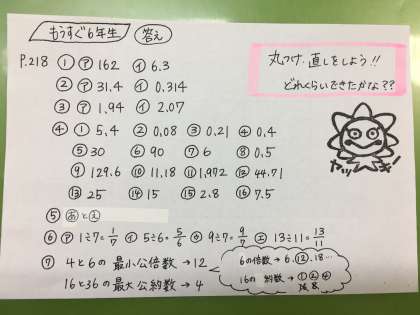 もうすぐ6年生 答え
P.218 ① ㋐ 162 ㋑ 6.3
② ㋐ 31.4 ㋑ 0.314
③ ㋐ 1.94 ㋑ 2.07
④ ① 5.4 ② 0.08 ③ 0.21 ④ 0.4
⑤ 30 ⑥ 90 ⑦ 6 ⑧ 0.5
⑨ 129.6 ⑩ 11.18 ⑪ 1.972 ⑫ 44.71
⑬ 25 ⑭ 15 ⑮ 2.8 ⑯ 7.5
⑤ あとえ
⑥ ㋐ 1÷7=1/7 ㋑ 5÷6=5/6 ㋒ 9÷7=9/7 ㋓ 13÷11=13/11
⑦ 4と6の最小公倍数→12
16と36の最大公約数→4
丸つけ、直しをしよう!!
どれくらいできたかな??
6の倍数→6.⑫.18…
16の約数→①②④